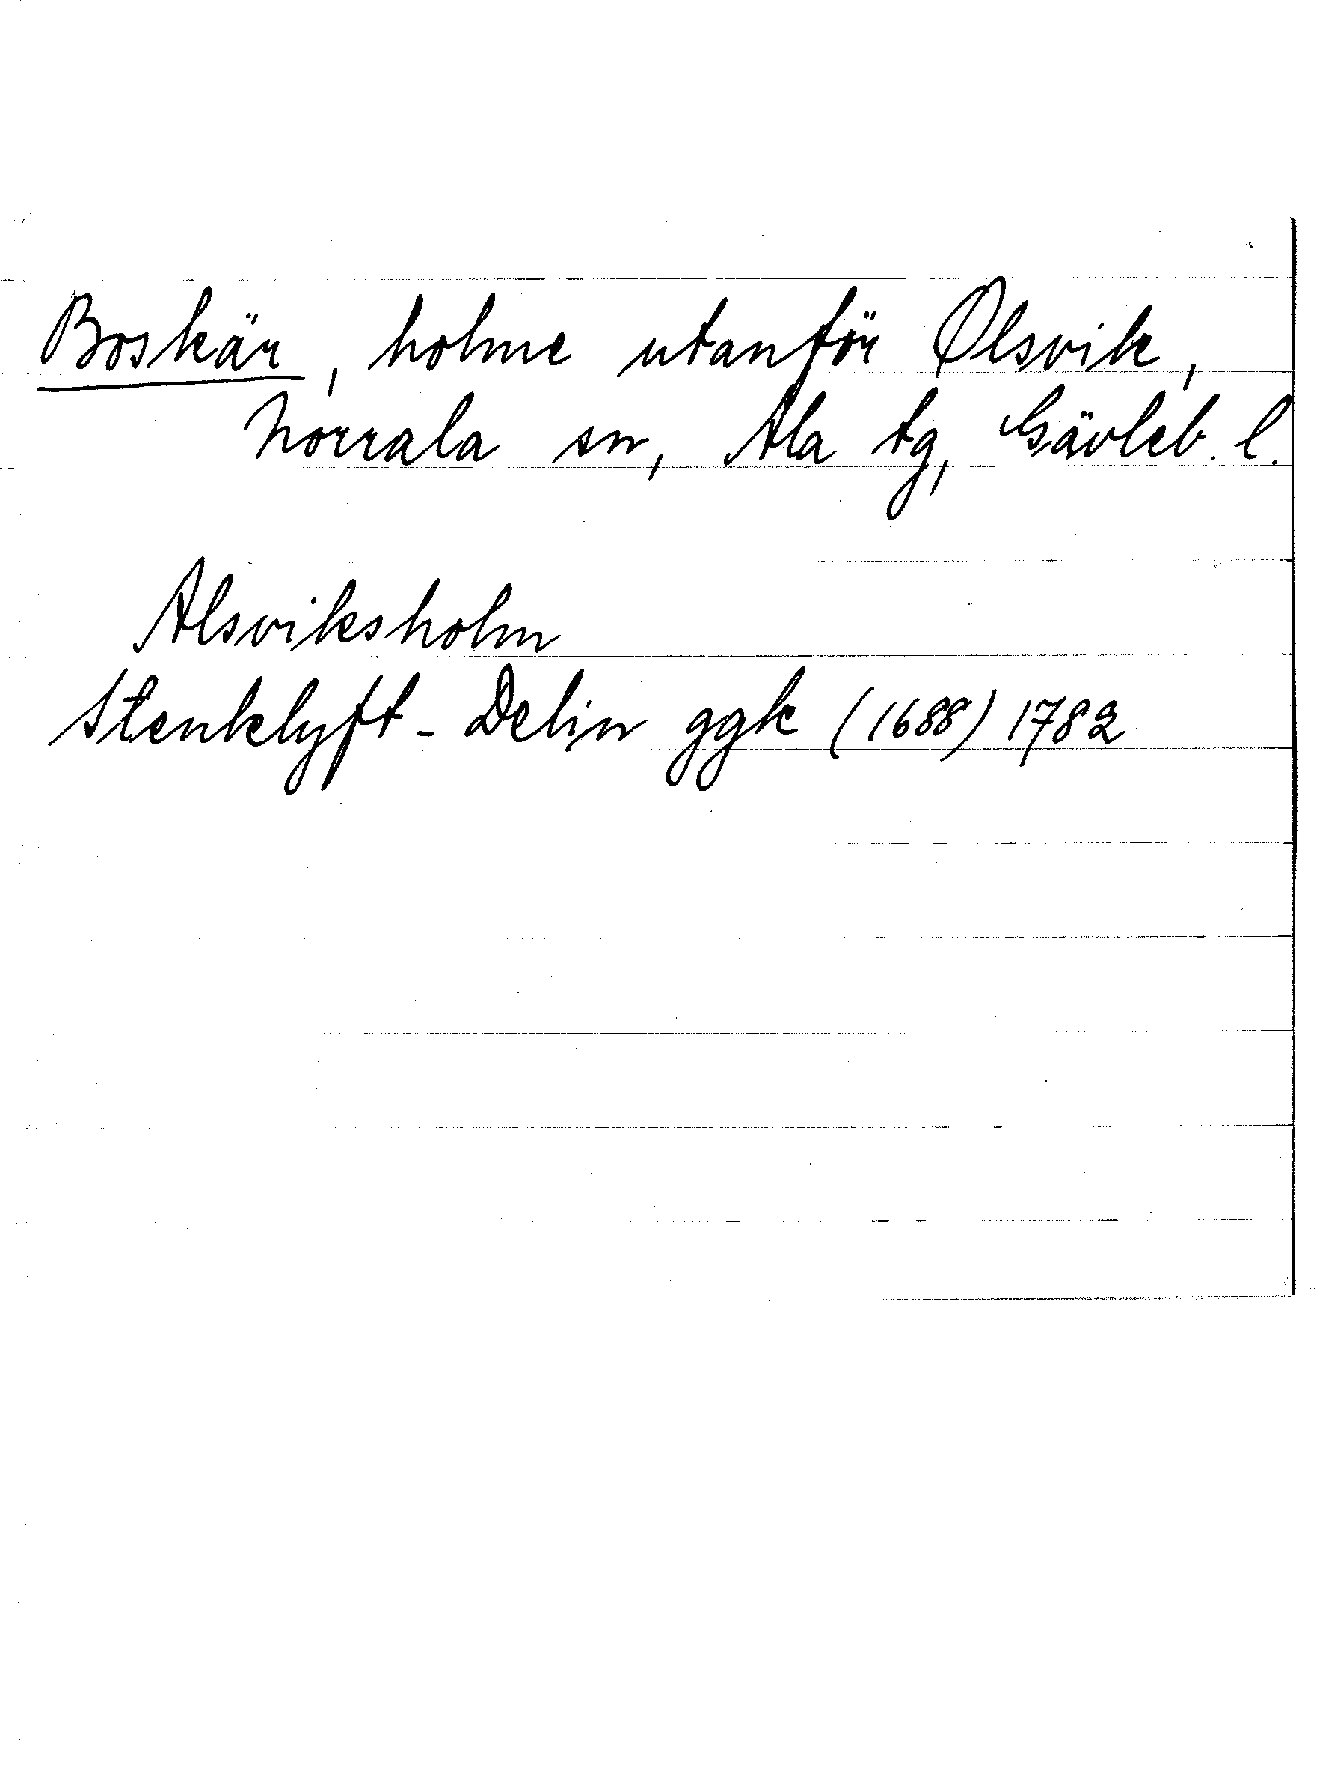 Boskär, holme utanför Olsvik,
Norrala sn, Ala tg, Gävleb. l.
Alsviksholm
Stenklyft - Delin ggk (1688) 1782